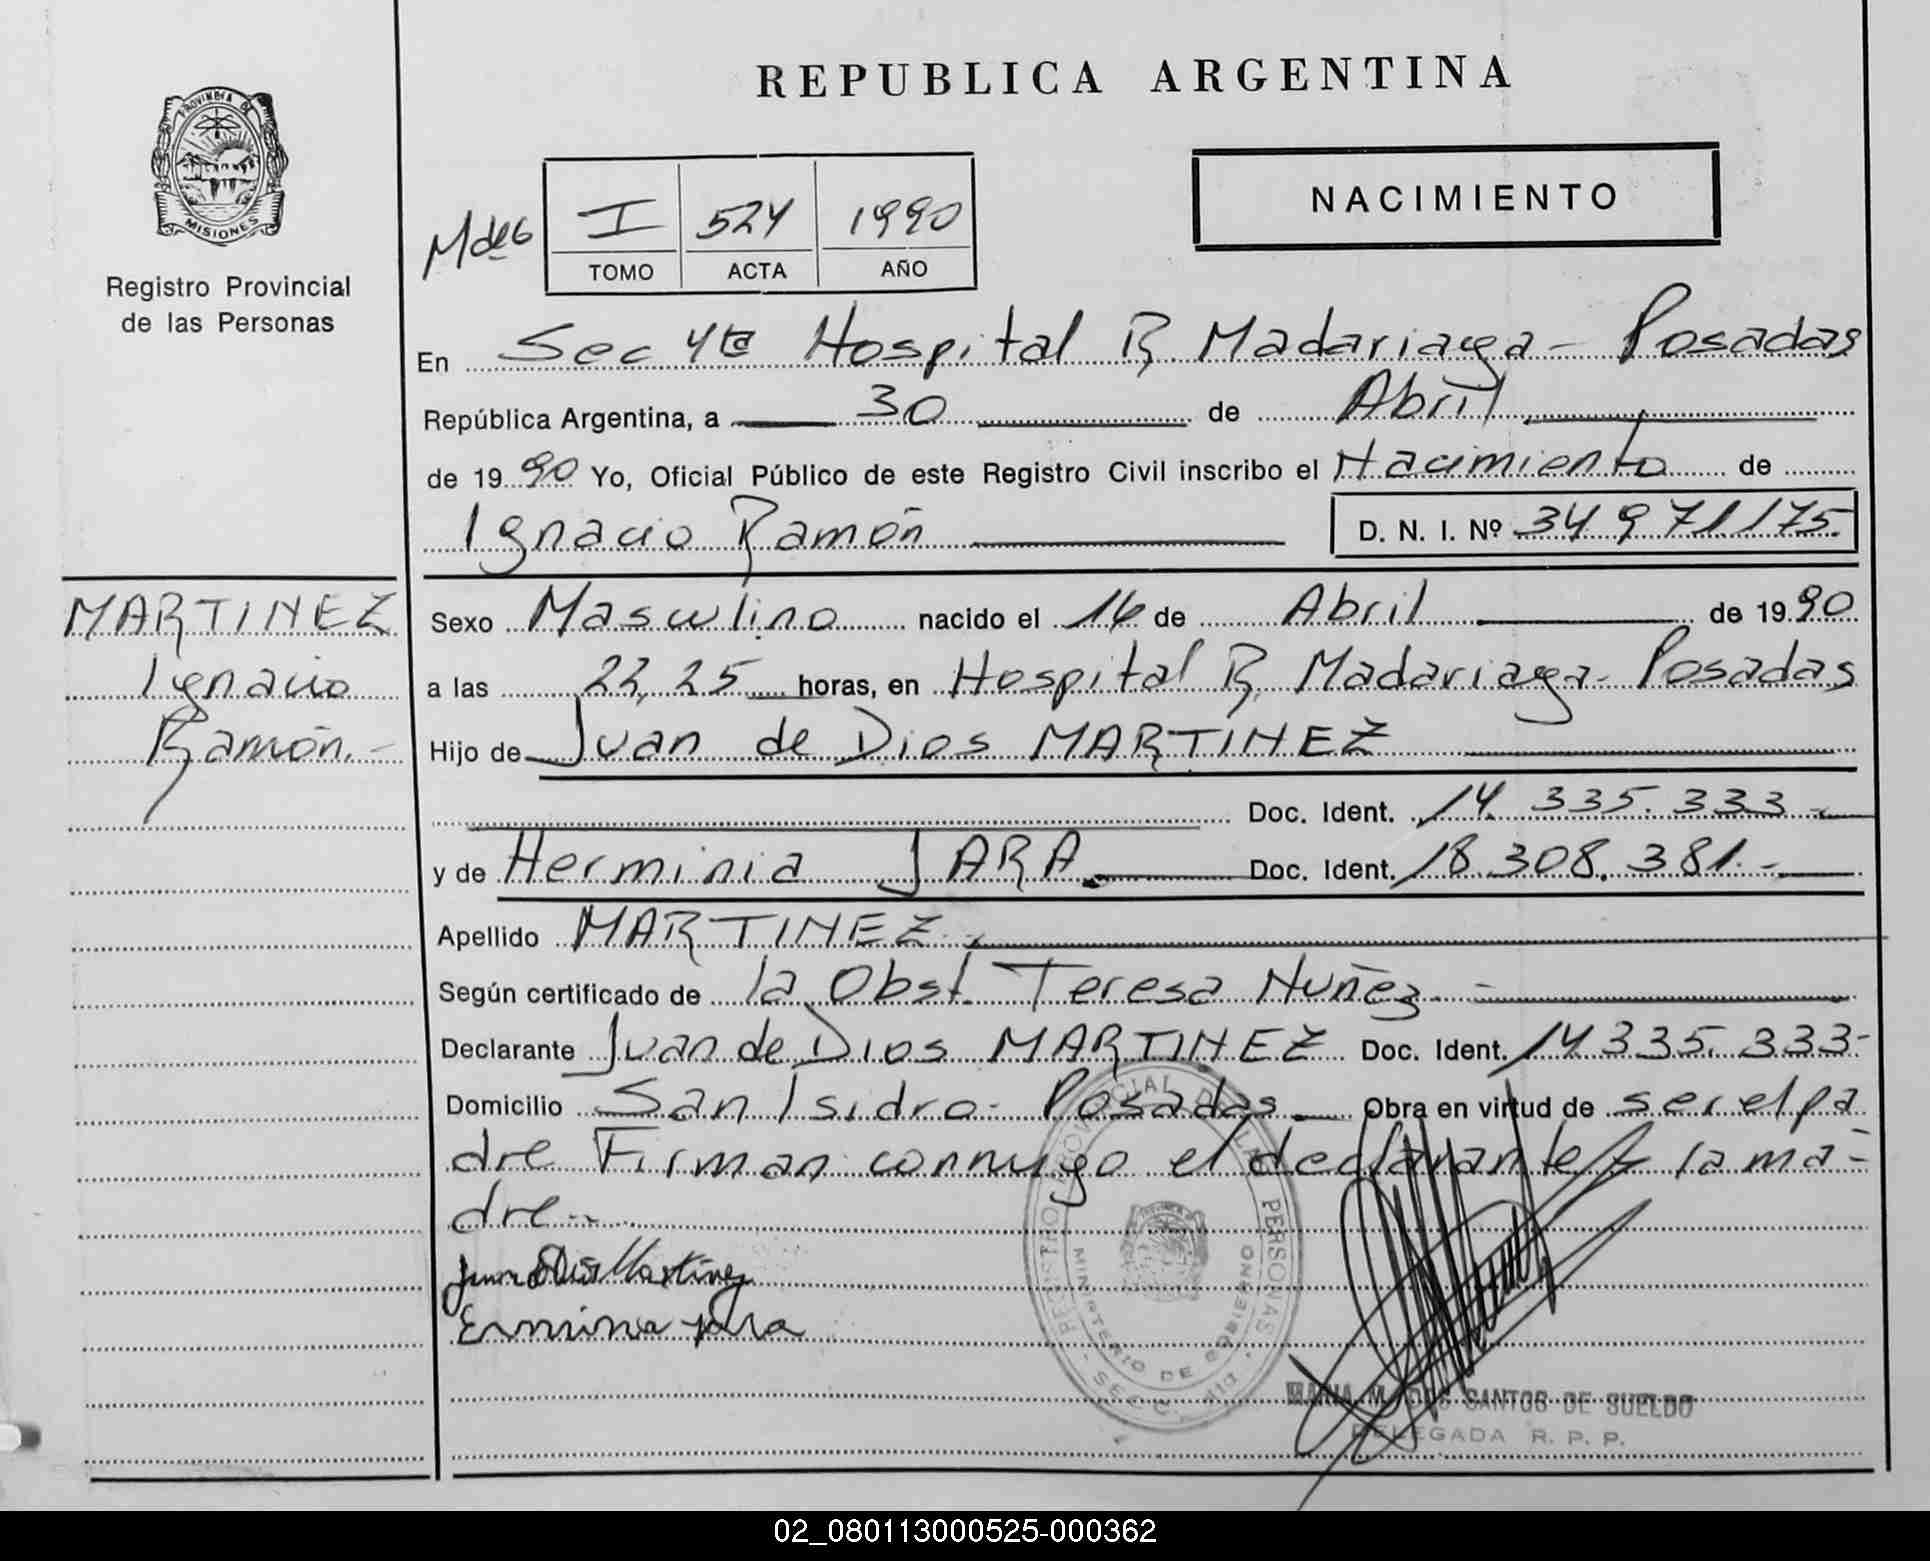 REPUBLICA ARGENTINA
PROVINCIA DE
MISIONES
Registro Provincial
de las Personas
NACIMIENTO
I 524 1990
TOMO ACTA AÑO
En Sec 4ta Hospital R. Madariaga - Posadas
República Argentina, a 30 de Abril
de 1990 Yo, Oficial Público de este Registro Civil inscribo el Nacimiento de
Ignacio Ramón D. N. I. Nº 34 971175.
MARTINEZ
Ignacio
Ramón.-
Sexo Masculino nacido el 16 de Abril de 1990
a las 22,25 horas, en Hospital R. Madariaga - Posadas
Hijo de Juan de Dios MARTINEZ
Doc. Ident. 14. 335. 333 -
y de Herminia JARA. Doc. Ident. 18.308.381.-
Apellido MARTINEZ.
Según certificado de la Obst. Teresa Nuñez. -
Declarante Juan de Dios MARTINEZ Doc. Ident. 14 335. 333-
Domicilio San Isidro - Posadas. Obra en virtud de ser el pa
dre Firman conmigo el declarante y la ma-
dre--
Martinez
Erminia jara
REGISTRO PROVINCIAL DE LAS PERSONAS
MINISTERIO DE GOBIERNO
MARIA M. DOS SANTOS DE SUELDO
DELEGADA R. P. P.
02_080113000525-000362